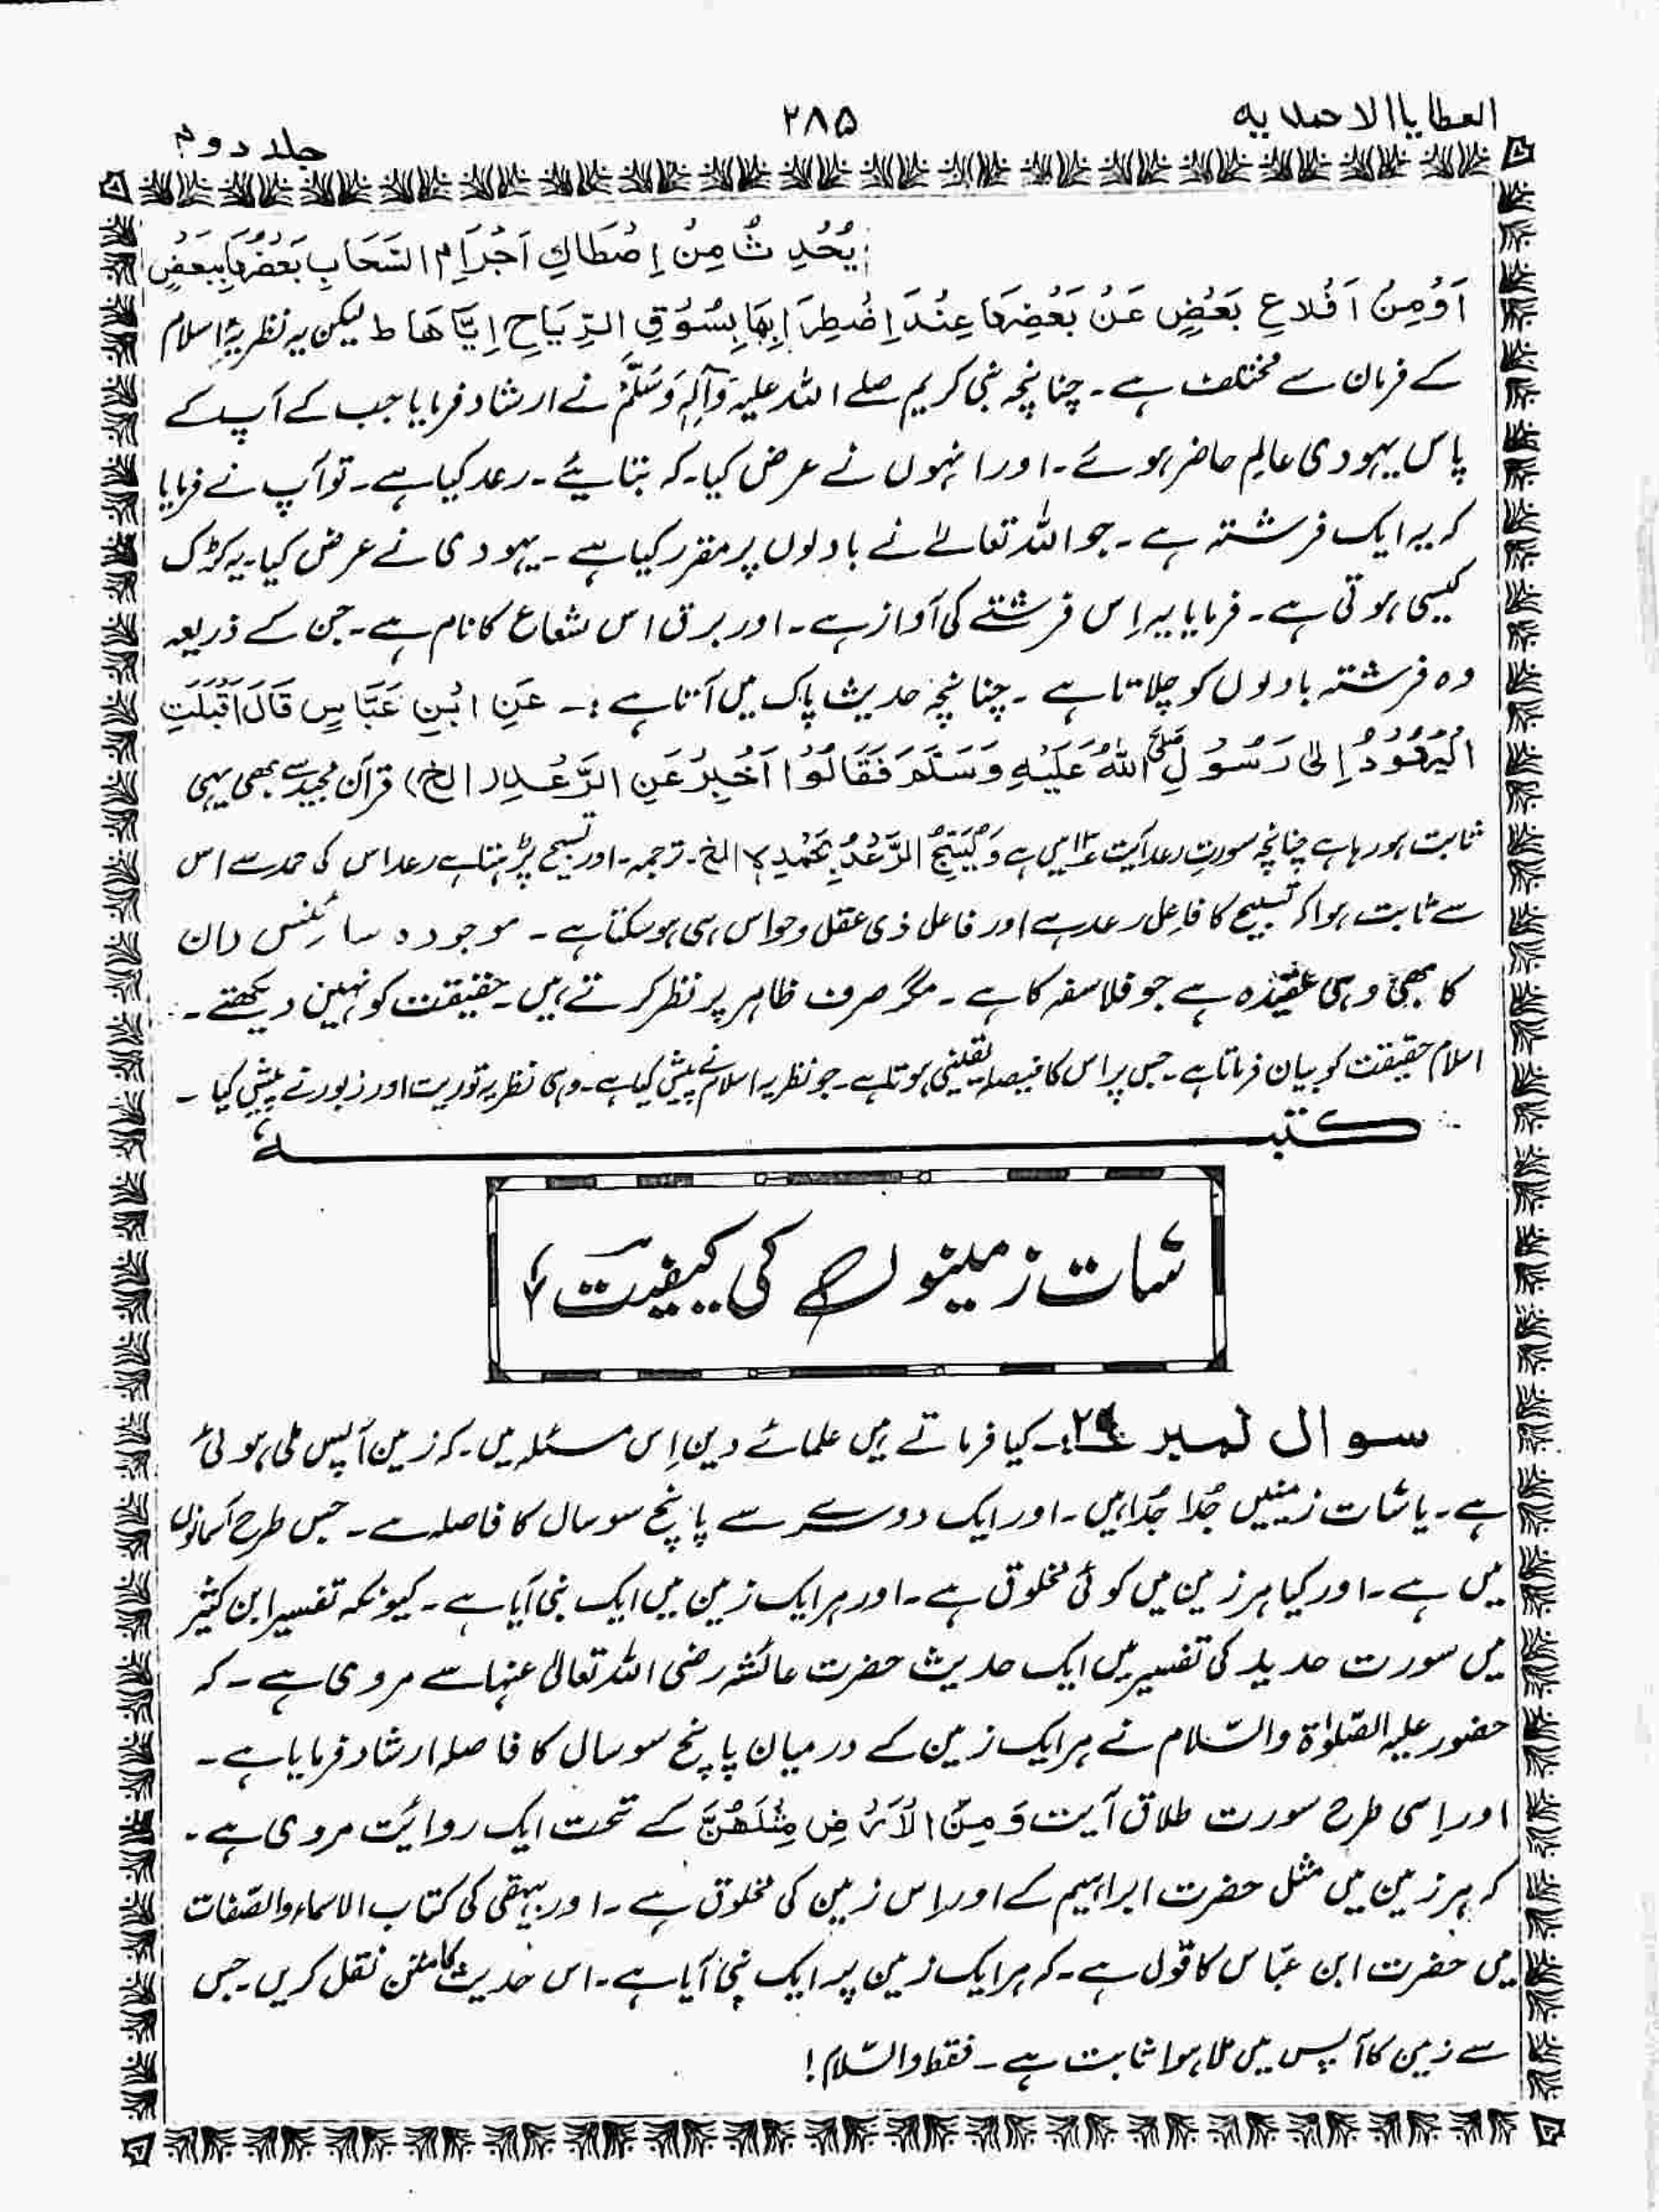 العطایا الاحمدیہ
۲۸۵
جلد دوم
یُحْدِثُ مِنْ اِصْطَاكِ اَجْرَامِ السَّحَابِ بَعْضُهَا بِبَعْضٍ
اَوْمِنْ اَقْلاعِ بَعْضٍ عَنْ بَعْضِهَا عِنْدَ اِضْطِرَابِهَا بِسُوْقِ الرِّيَاحِ اِيَّاهَا ط لیکن یہ نظریۂ اسلام
کے فرمان سے مختلف ہے۔ چنانچہ نبی کریم صلے اللہ علیہ وَآلِہٖ وَسَلَّمْ نے ارشاد فرمایا جب کے آپ کے
پاس یہودی عالِم حاضر ہوئے۔ اور انہوں نے عرض کیا۔ کہ بتایئے۔ رعد کیا ہے۔ تو آپ نے فرمایا
کہ یہ ایک فرشتہ ہے۔ جو اللہ تعالےٰ نے بادلوں پر مقرر کیا ہے۔ یہودی نے عرض کیا۔ یہ کڑک
کیسی ہوتی ہے۔ فرمایا یہ اِس فرشتے کی آواز ہے۔ اور برق اس شعاع کا نام ہے۔ جن کے ذریعہ
وہ فرشتہ بادلوں کو چلاتا ہے۔ چنانچہ حدیث پاک میں آتا ہے :۔ عَنِ ابْنِ عَبَّاسٍ قَالَ اَقْبَلَتِ
الْيَهُوْدُ اِلىٰ رَسُوْلِ صَلَّی اللهُ عَلَيْهِ وَسَلَّمَ فَقَالُوْا اَخْبِرْ عَنِ الرَّعْدِ (الخ) قرآن مجید سے بھی یہی
ثابت ہو رہا ہے چنانچہ سورت رعد آیت ۱۳ میں ہے وَيُسَبِّحُ الرَّعْدُ بِحَمْدِهٖ الخ۔ ترجمہ۔ اور تسبیح پڑہتا ہے رعد اس کی حمد سے اس
سے ثابت ہوا کہ تسبیح کا فاعِل رعد ہے اور فاعل ذی عقل و حواس ہی ہو سکتا ہے۔ موجودہ سائنس دان
کا بھی وہی عقیدہ ہے جو فلاسفہ کا ہے۔ مگر صرف ظاہر پر نظر کرتے ہیں۔ حقیقت کو نہیں دیکھتے۔
اسلام حقیقت کو بیان فرماتا ہے۔ جس پر اس کا فیصلہ یقینی ہوتا ہے۔ جو نظریہ اسلام نے پیش کیا ہے۔ وہی نظریہ توریت اور زبور نے پیش کیا۔
کتبـــــــــــــہ
سات زمینوں کی کیفیت
سوال نمبر ۲۹:۔ کیا فرماتے ہیں علمائے دین اِس مسئلہ میں۔ کہ زمین آپس ملی ہوئی
ہے۔ یا سات زمینیں جُدا جُدا ہیں۔ اور ایک دوسرے سے پانچ سو سال کا فاصلہ ہے۔ جس طرح آسمانوں
میں ہے۔ اور کیا ہر زمین میں کوئی مخلوق ہے۔ اور ہر ایک زمین میں ایک نبی آیا ہے۔ کیونکہ تفسیر ابن کثیر
میں سورت حدید کی تفسیر میں ایک حدیث حضرت عائشہ رضی اللہ تعالیٰ عنہا سے مروی ہے۔ کہ
حضور علیہ الصّلوٰۃ والسّلام نے ہر ایک زمین کے درمیان پانچ سو سال کا فاصلہ ارشاد فرمایا ہے۔
اور اِسی طرح سورت طلاق آیت وَ مِنَ الْاَرْضِ مِثْلَهُنَّ کے تحت ایک روایَت مروی ہے۔
کہ ہر زمین میں مثل حضرت ابراہیم کے اور اِس زمین کی مخلوق ہے۔ اور بیہقی کی کتاب الاسماء والصّفات
میں حضرت ابن عبّاس کا قول ہے۔ کہ ہر ایک زمین پر ایک نبی آیا ہے۔ اس حدیث کا متن نقل کریں۔ جس
سے زمین کا آپس میں ملا ہوا ثابت ہے۔ فقط والسّلام!